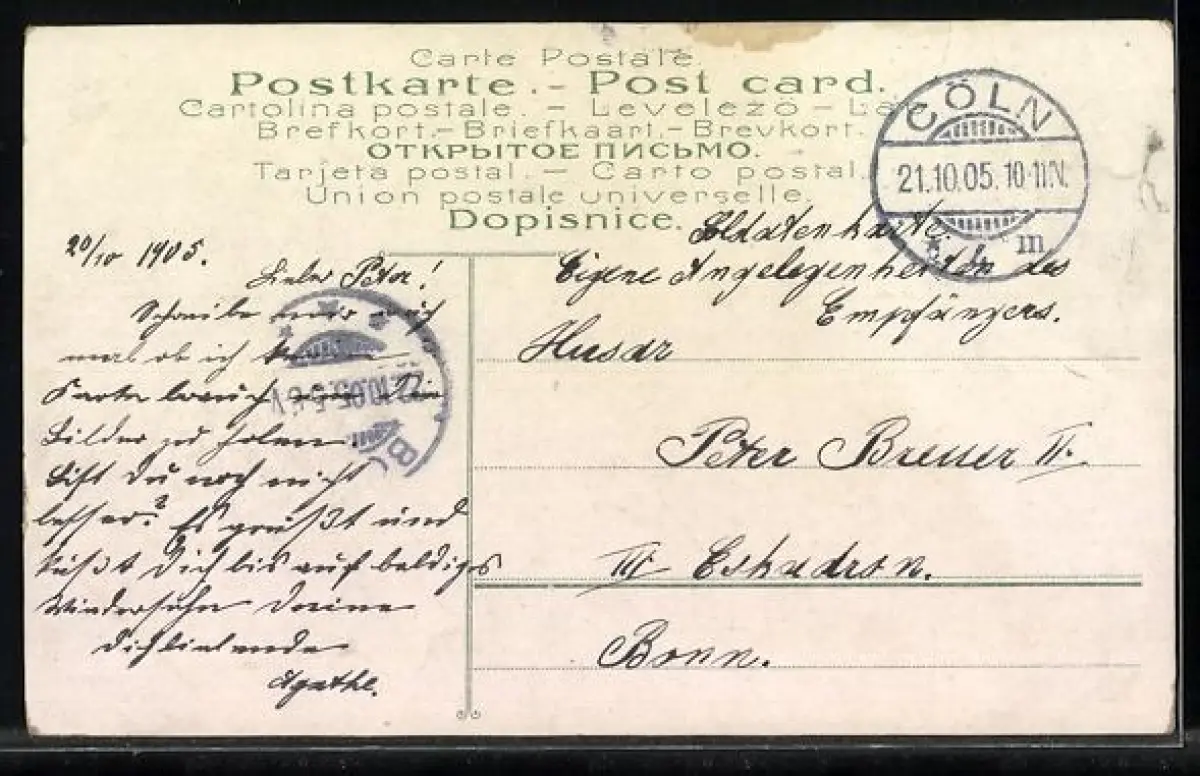 Carte Postale.
Postkarte. - Post card.
Cartolina postale. - Levelező - La
Brefkort. - Briefkaart. - Brevkort.
ОТКРЫТОЕ ПИСЬМО.
Tarjeta postal. - Carto postal.
Union postale universelle.
Dopisnice.
CÖLN
21.10.05. 10-11N.
* 1 m
20/10 1905.
Lieber Peter!
Schreibe mir auch
mal ob ich keine
Karte brauch um die
Bilder zu holen.
Bist Du noch nicht
besser? Es grüßt und
küßt Dich bis auf baldiges
Wiedersehn Deine
Dichliebende
Agathe.
22.10.05. 5-6V
B
Soldatenkarte
Eigene Angelegenheiten des
Empfängers.
Husar
Peter Breuer II.
III Eskadron.
Bonn.